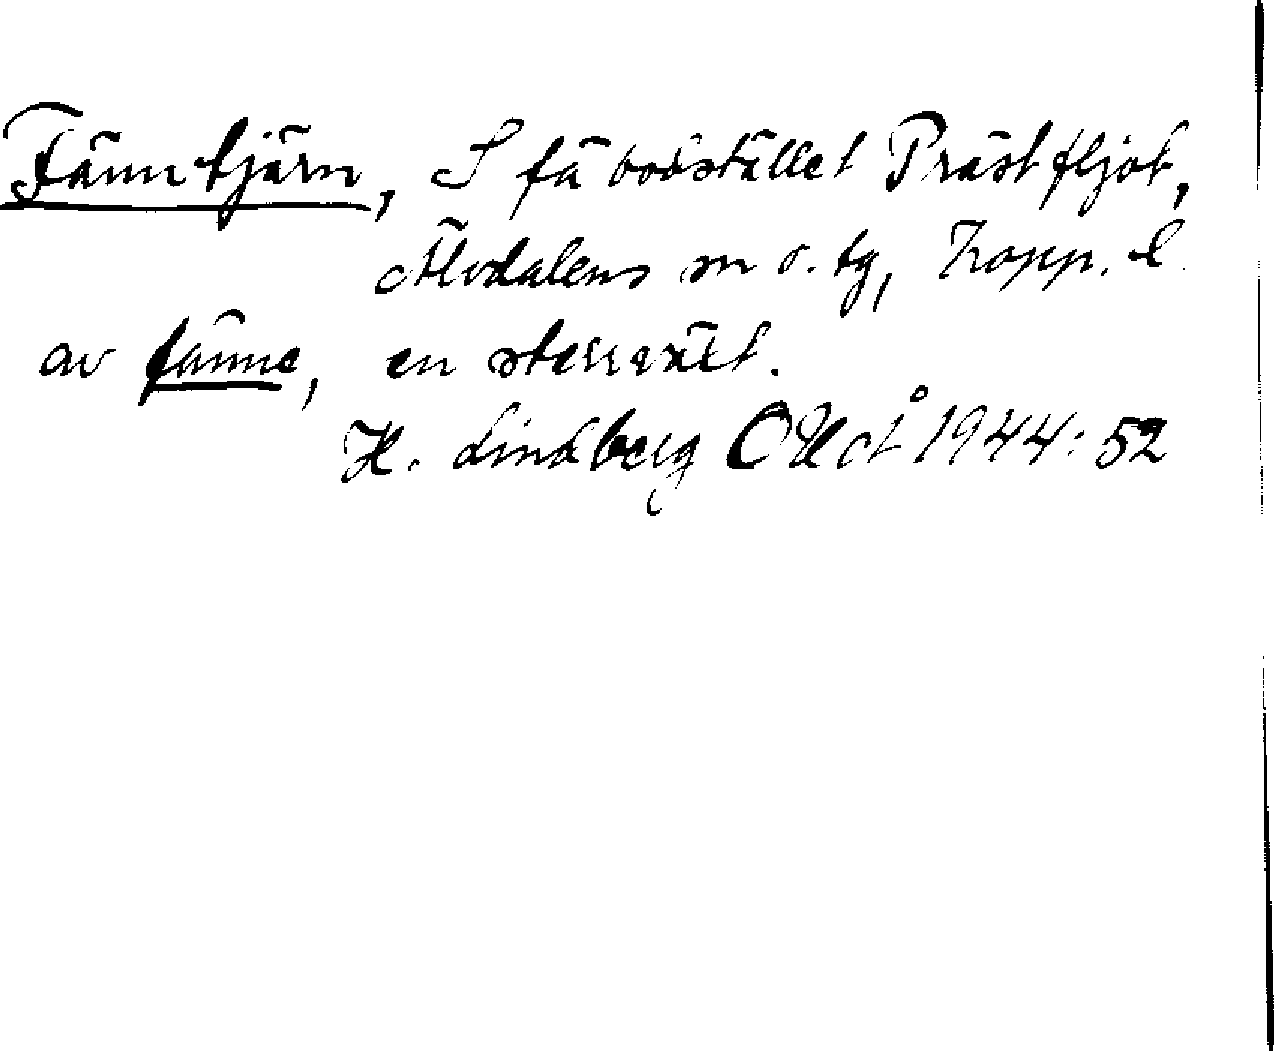 Fänntjärn, S fäbodstället Prästfljot,
Älvdalens sn o. tg, Kopp. l.
av fänne, en starrväxt.
H. Lindberg OUoÅ 1944: 52